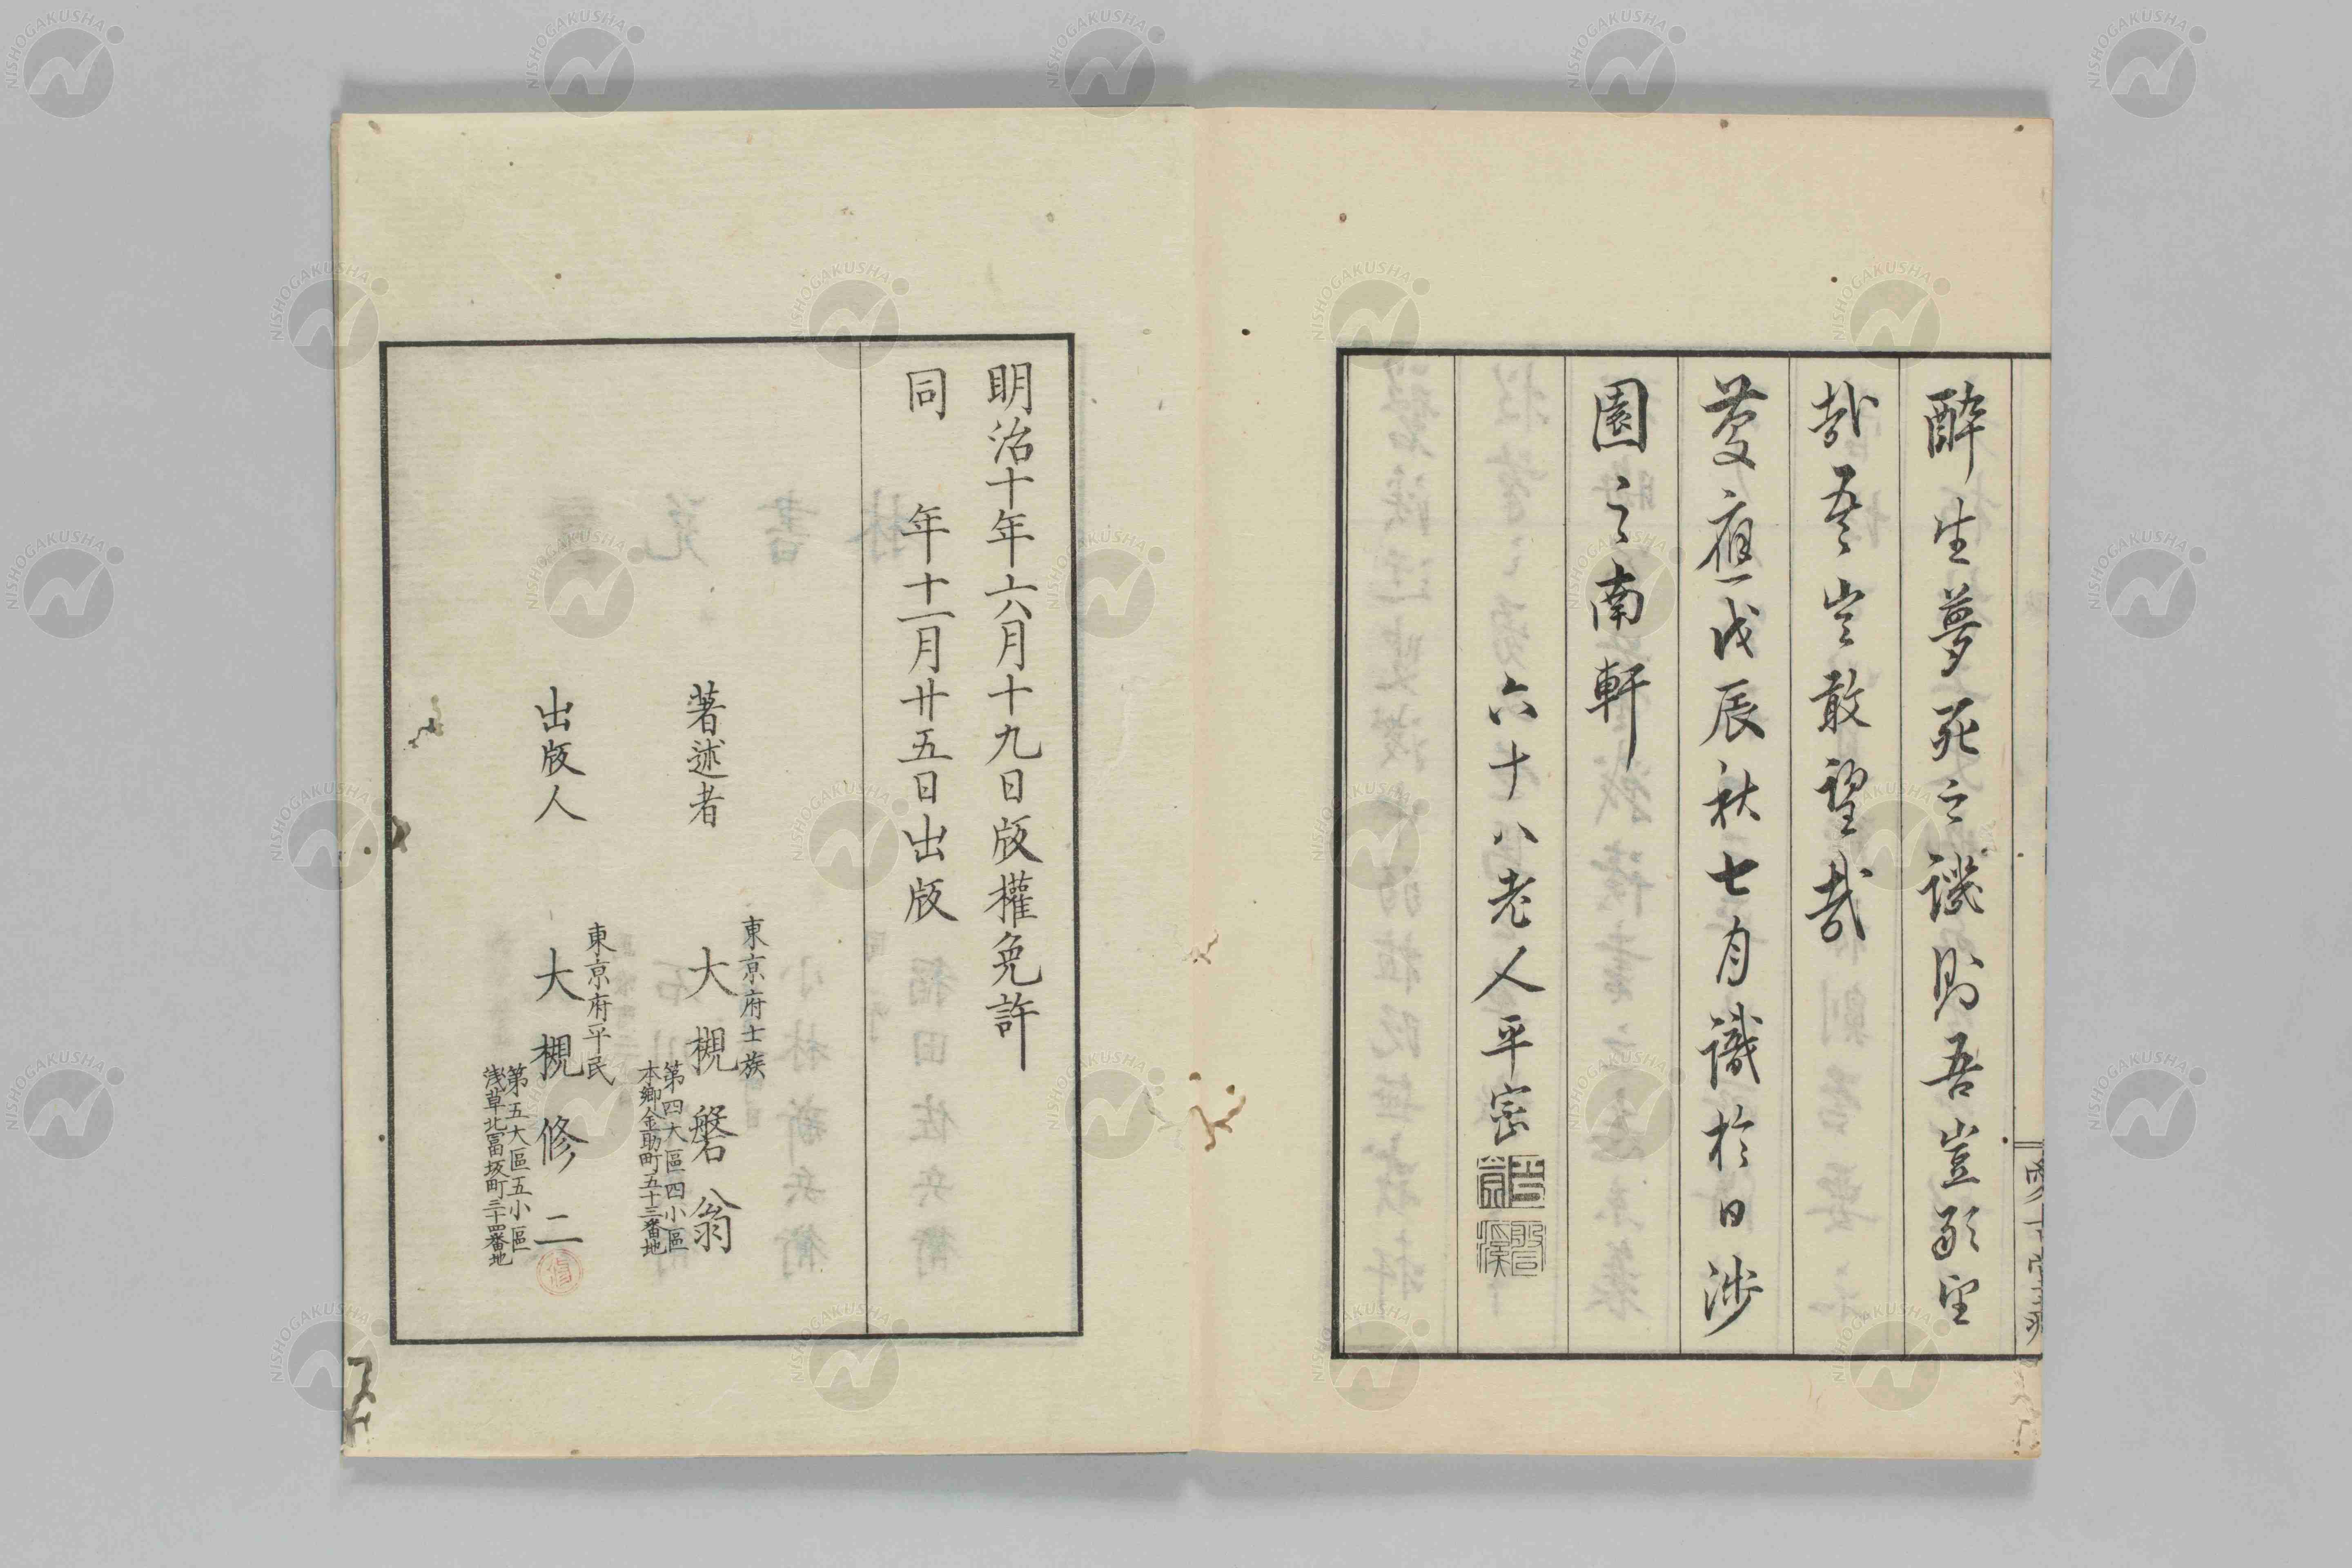 醉生夢死之譏則吾豈敢望
哉吾豈敢望哉
慶應戊辰秋七月識於日渉
園之南軒
六十八老人平崇
明治十年六月十九日版權免許
同年十一月廿五日出版
著述者
東京府士族
大槻磐翁
第四大區四小區
本郷金助町五十三番地
出版人
東京府平民
大槻修二
第五大區五小區
淺草北冨坂町三十四番地
NISHOGAKUSHA